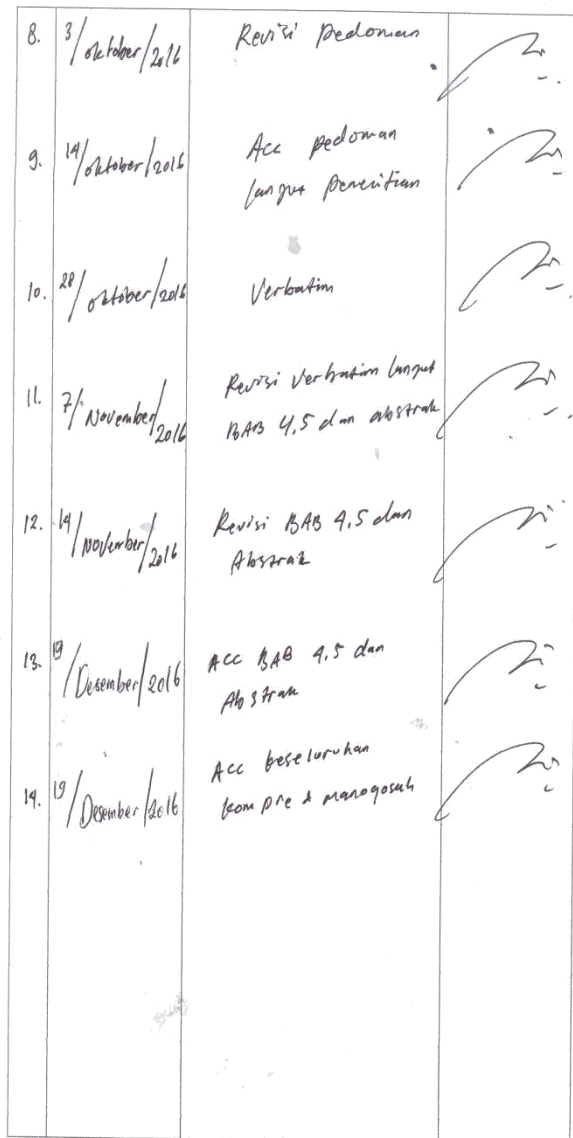 8. 3/oktober/2016 Revisi pedoman
9. 14/oktober/2016 Acc pedoman
lanjut penelitian
10. 28/oktober/2016 Verbatim
11. 7/November/2016 Revisi Verbatim lanjut
BAB 4,5 dan abstrak
12. 14/November/2016 Revisi BAB 4,5 dan
Abstrak
13. 19/Desember/2016 Acc BAB 4,5 dan
Abstrak
14. 19/Desember/2016 Acc keseluruhan
kompre & manaqosah